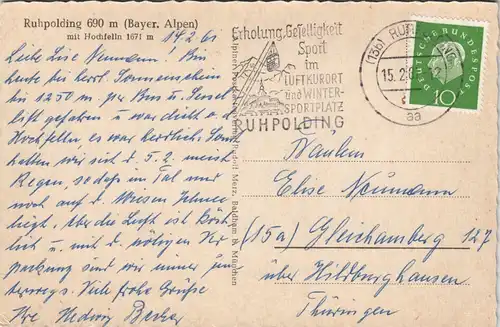 Ruhpolding 690 m (Bayer. Alpen)
mit Hochfelln 1671 m
14.2.61
Liebe Lise Neumann. Bin
heute bei herrl. Sonnenschein
bis 1250 m. per Bus u. Sessel
lift gefahren u. war dicht a.
Hochfelln, es war herrlich. Sonst
hatten wir seit d. 5.2. meist
Regen, so daß im Tal und
auf d. Wiesen Schnee
liegt, aber die Luft ist
lich u. mit d. nötigen Ver
packung sind wir immer un
terwegs. Viele frohe Grüße
Ihre Hedwig
Erholung, Geselligkeit
Sport
im
LUFTKURORT
und WINTER-
SPORTPLATZ
RUHPOLDING
(13b) RUHPOLDING
15.2.61
aa
DEUTSCHE BUNDESPOST
10
Fräulein
Elise Neumann
(15a) Gleichamberg 127
über Hildburghausen
Thüringen